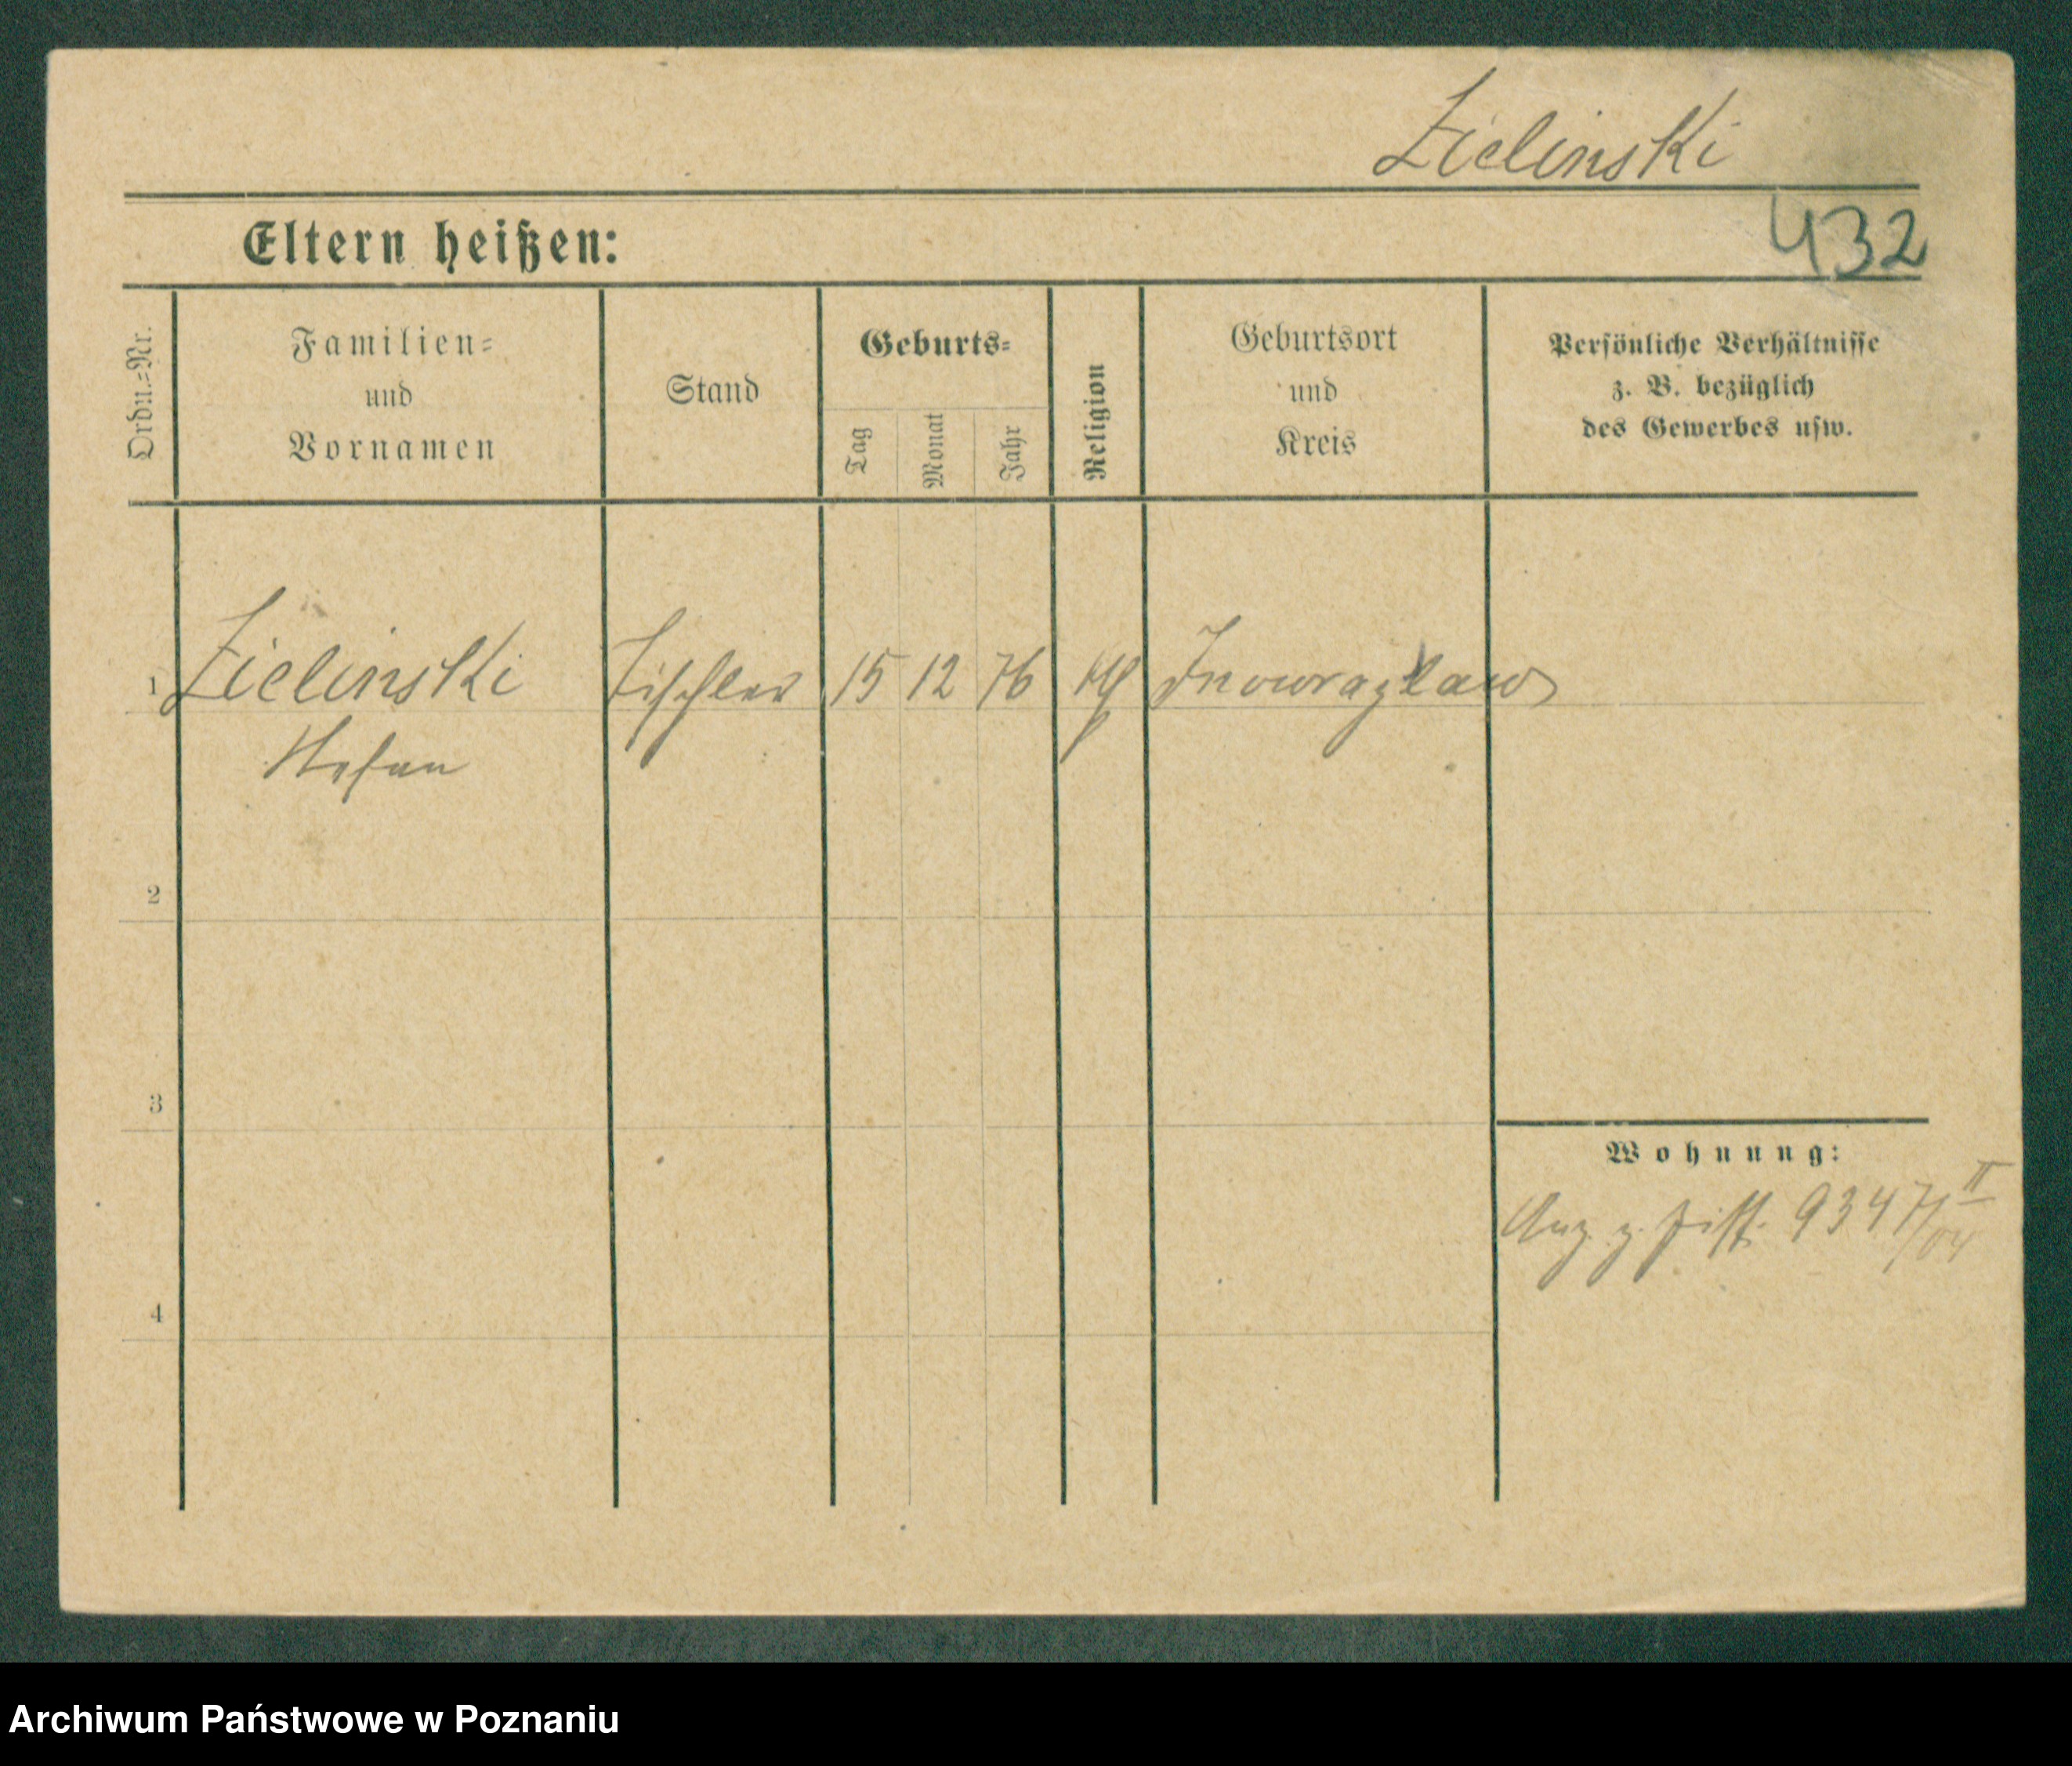 Zielinski
432
Eltern heißen:
Ordn.=Nr.
Familien=
und
Vornamen
Stand
Geburts=
Tag
Monat
Jahr
Religion
Geburtsort
und
Kreis
Persönliche Verhältnisse
z. B. bezüglich
des Gewerbes usw.
1 Zielinski Tischler 15 12 76 Inowrazlaw
Stefan
2
3
Wohnung:
9347 II
/04
4
Archiwum Państwowe w Poznaniu